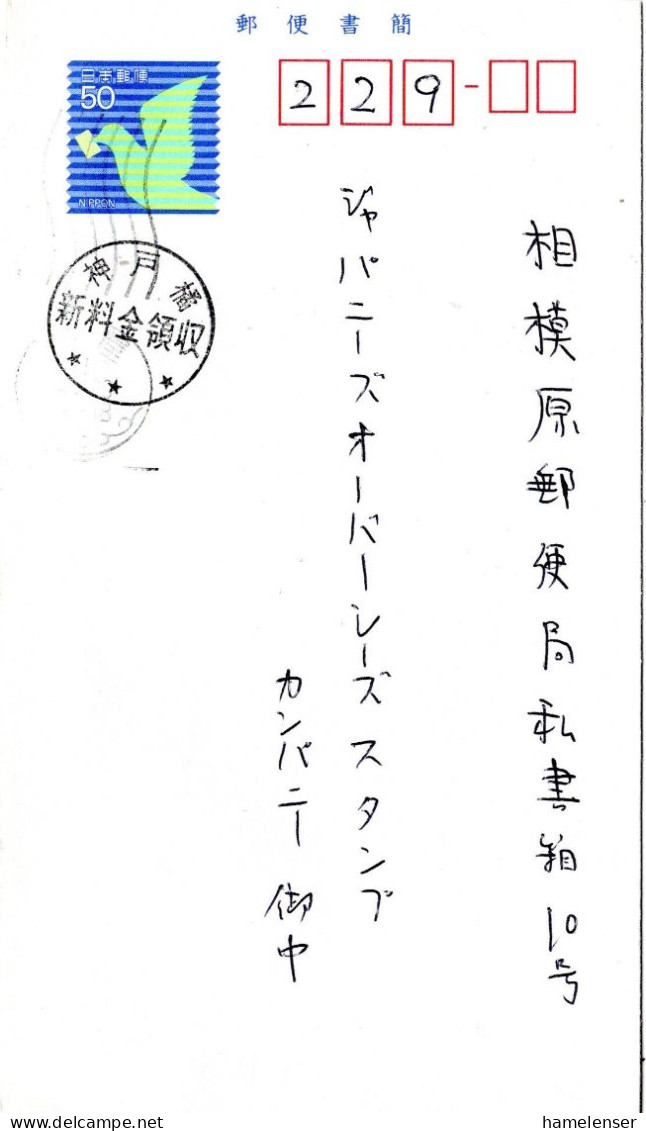 郵便書簡
日本郵便
50
NIPPON
229-
神戸橘
新料金領収
相模原郵便局私書箱10号
ジャパニーズオーバーシーズスタンプ
カンパニー御中
hamelenser